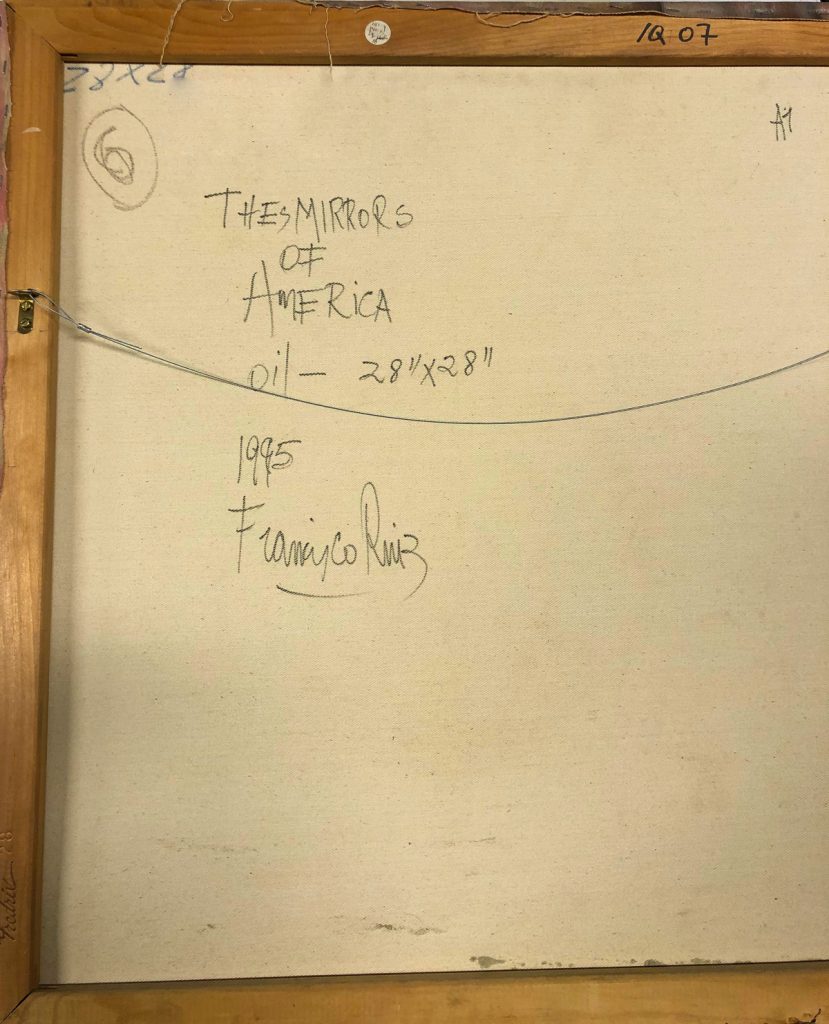 1Q 07
28X28
6
A1
THES MIRRORS
OF
AMERICA
oil — 28"X28"
1995
Francisco Ruiz
Fredrix 28